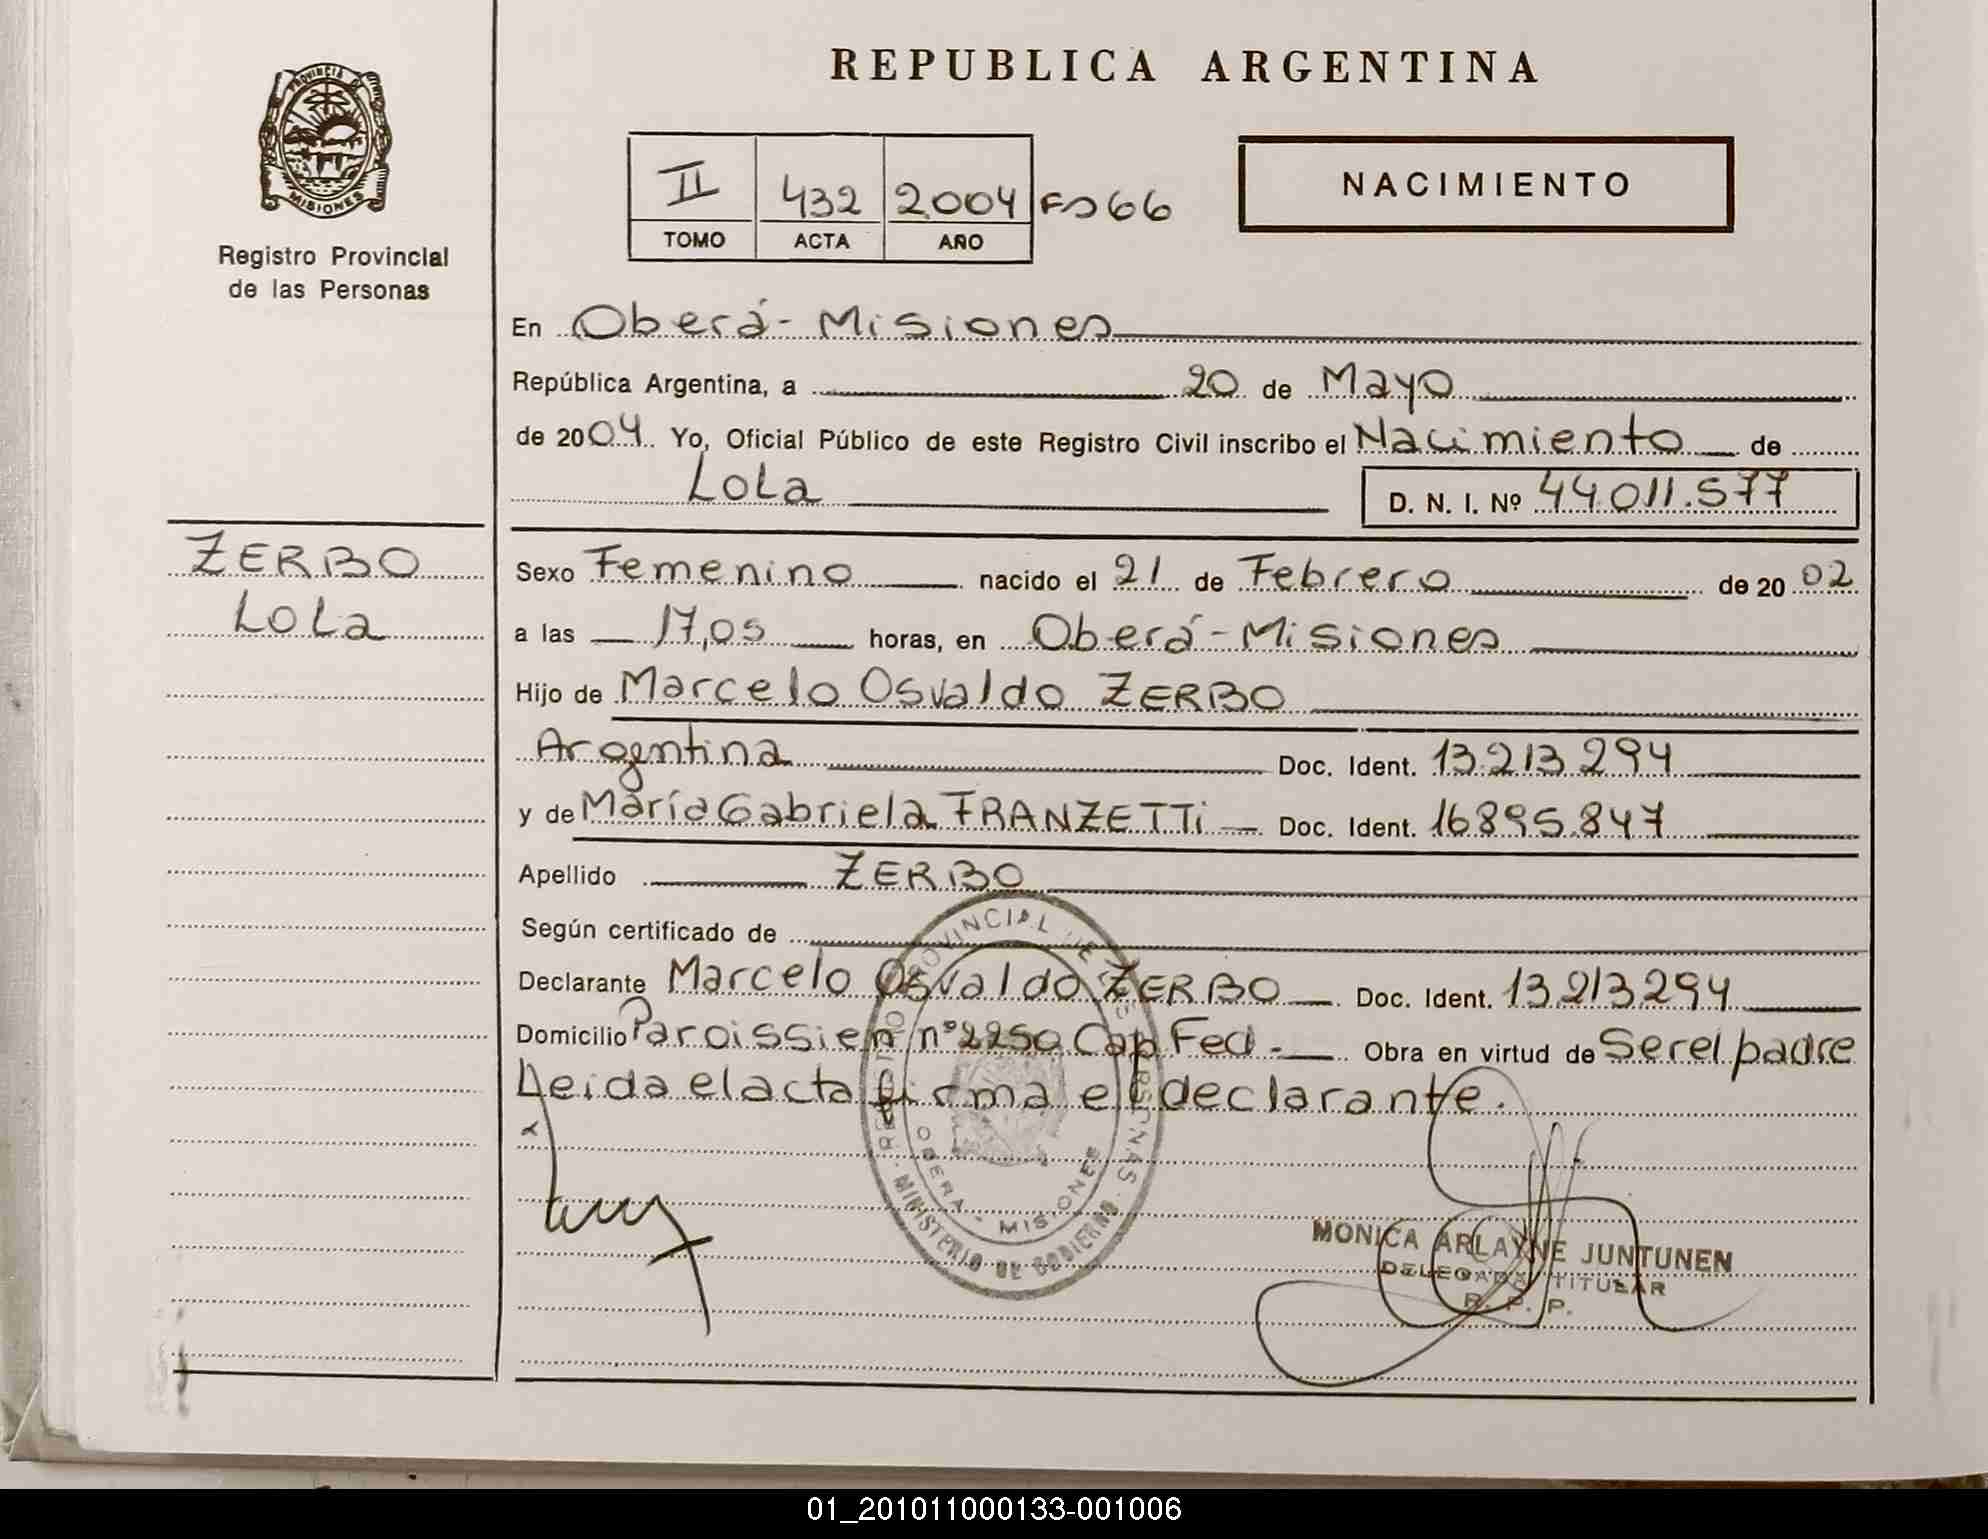 PROVINCIA DE
MISIONES
Registro Provincial
de las Personas
REPUBLICA ARGENTINA
II 432 2004 Fº 66
TOMO ACTA AÑO
NACIMIENTO
En Oberá - Misiones
República Argentina, a 20 de Mayo
de 2004. Yo, Oficial Público de este Registro Civil inscribo el Nacimiento de
Lola D. N. I. Nº 44.011.577
ZERBO
Lola
Sexo Femenino nacido el 21 de Febrero de 2002
a las 17,05 horas, en Oberá - Misiones
Hijo de Marcelo Osvaldo ZERBO
Argentina Doc. Ident. 13.213.294
y de María Gabriela FRANZETTi Doc. Ident. 16.895.847
Apellido ZERBO
Según certificado de
Declarante Marcelo Osvaldo ZERBO Doc. Ident. 13.213.294
Domicilio Paroissien nº 2250 Cap Fed. Obra en virtud de Ser el padre
Leida el acta firma el declarante.
REGISTRO PROVINCIAL DE LAS PERSONAS
OBERA - MISIONES
MINISTERIO DE GOBIERNO
MONICA ARLAYNE JUNTUNEN
DELEGADA TITULAR
R. P. P.
01_201011000133-001006